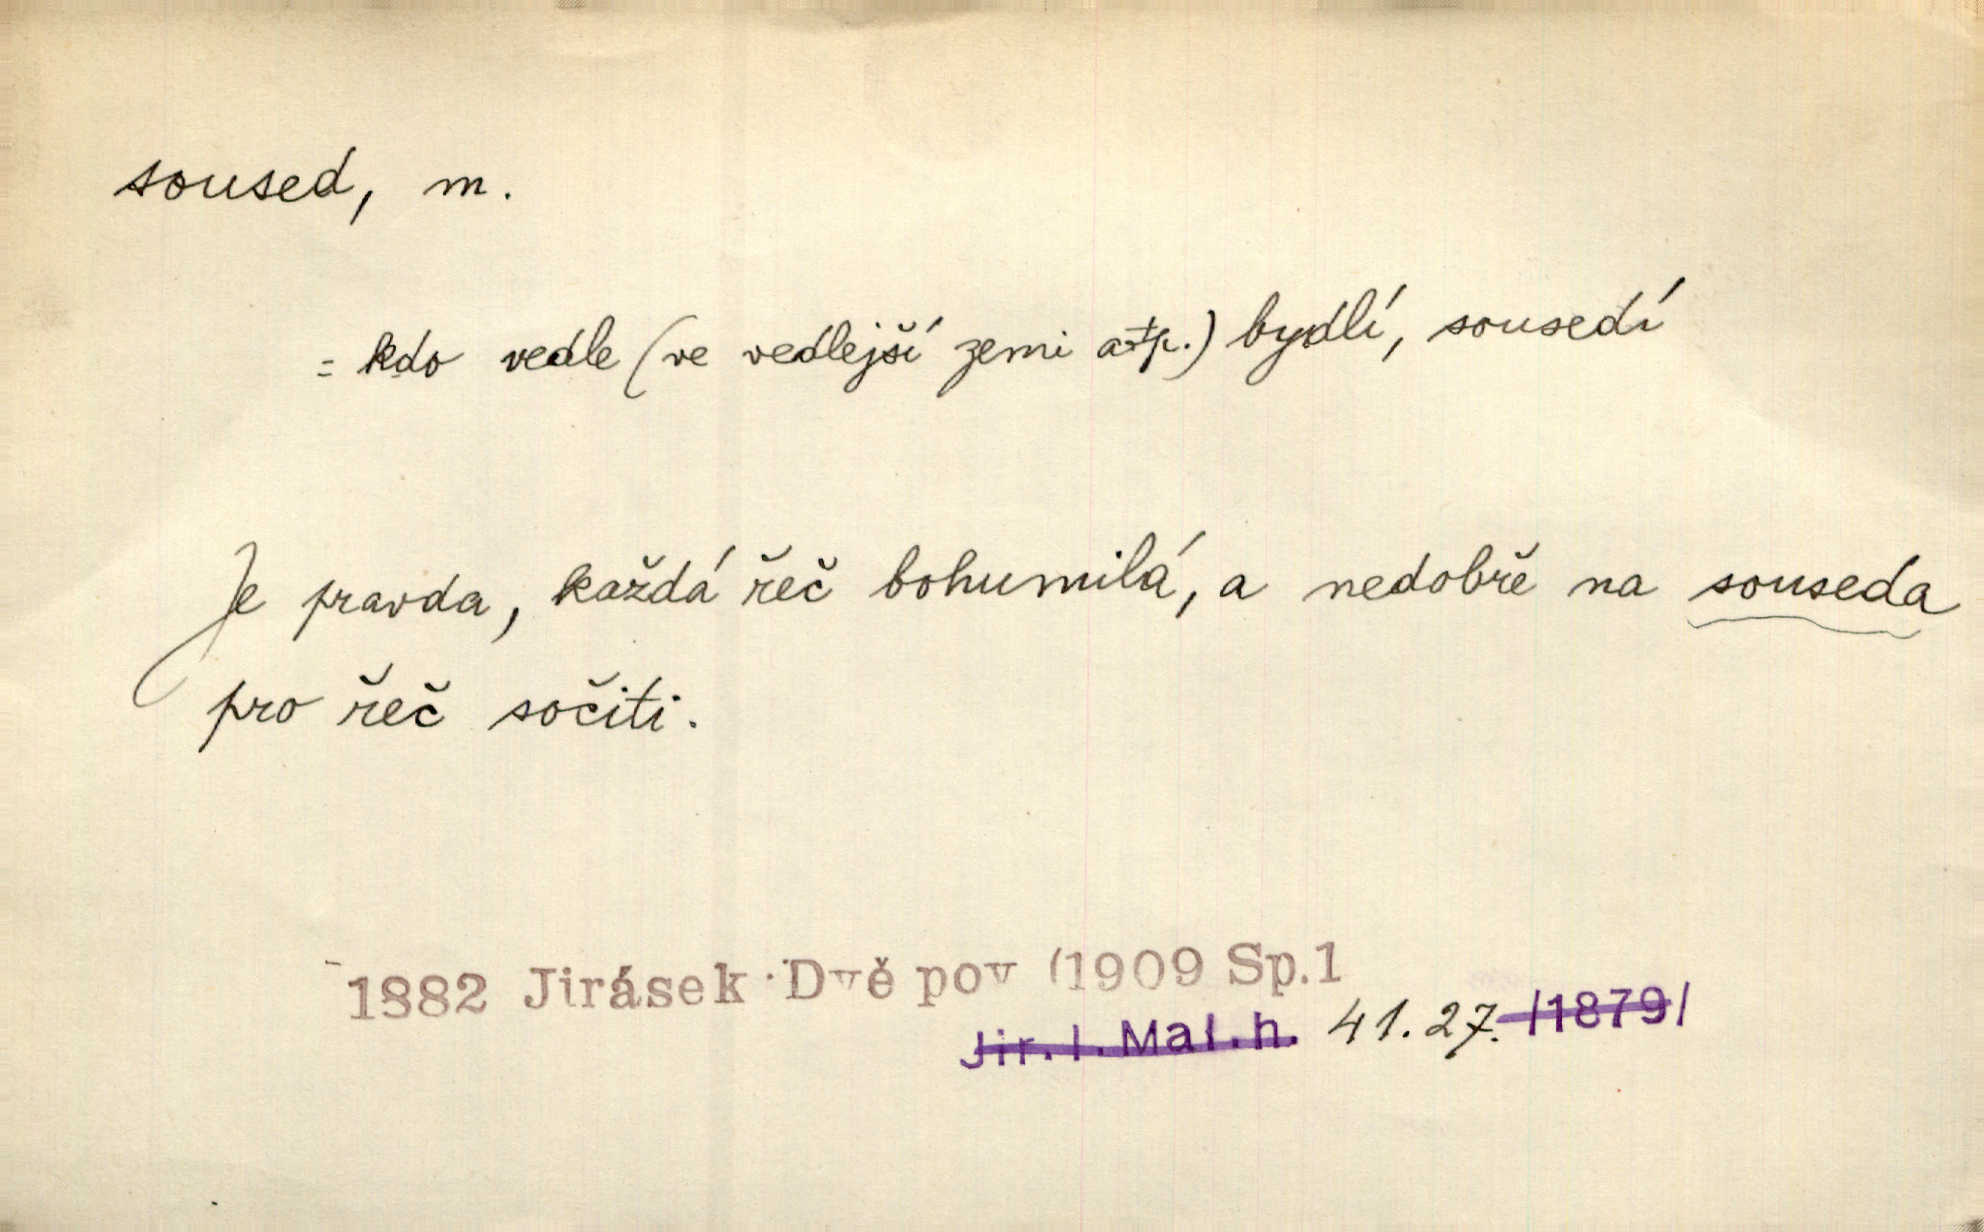 soused, m.
= kdo vedle (ve vedlejší zemi atp.) bydlí, sousedí
Je pravda, každá řeč bohumilá, a nedobře na souseda
pro řeč sočiti.
1882 Jirásek Dvě pov (1909 Sp.1
Jir. I. Mal. h. 41.27. /1879/